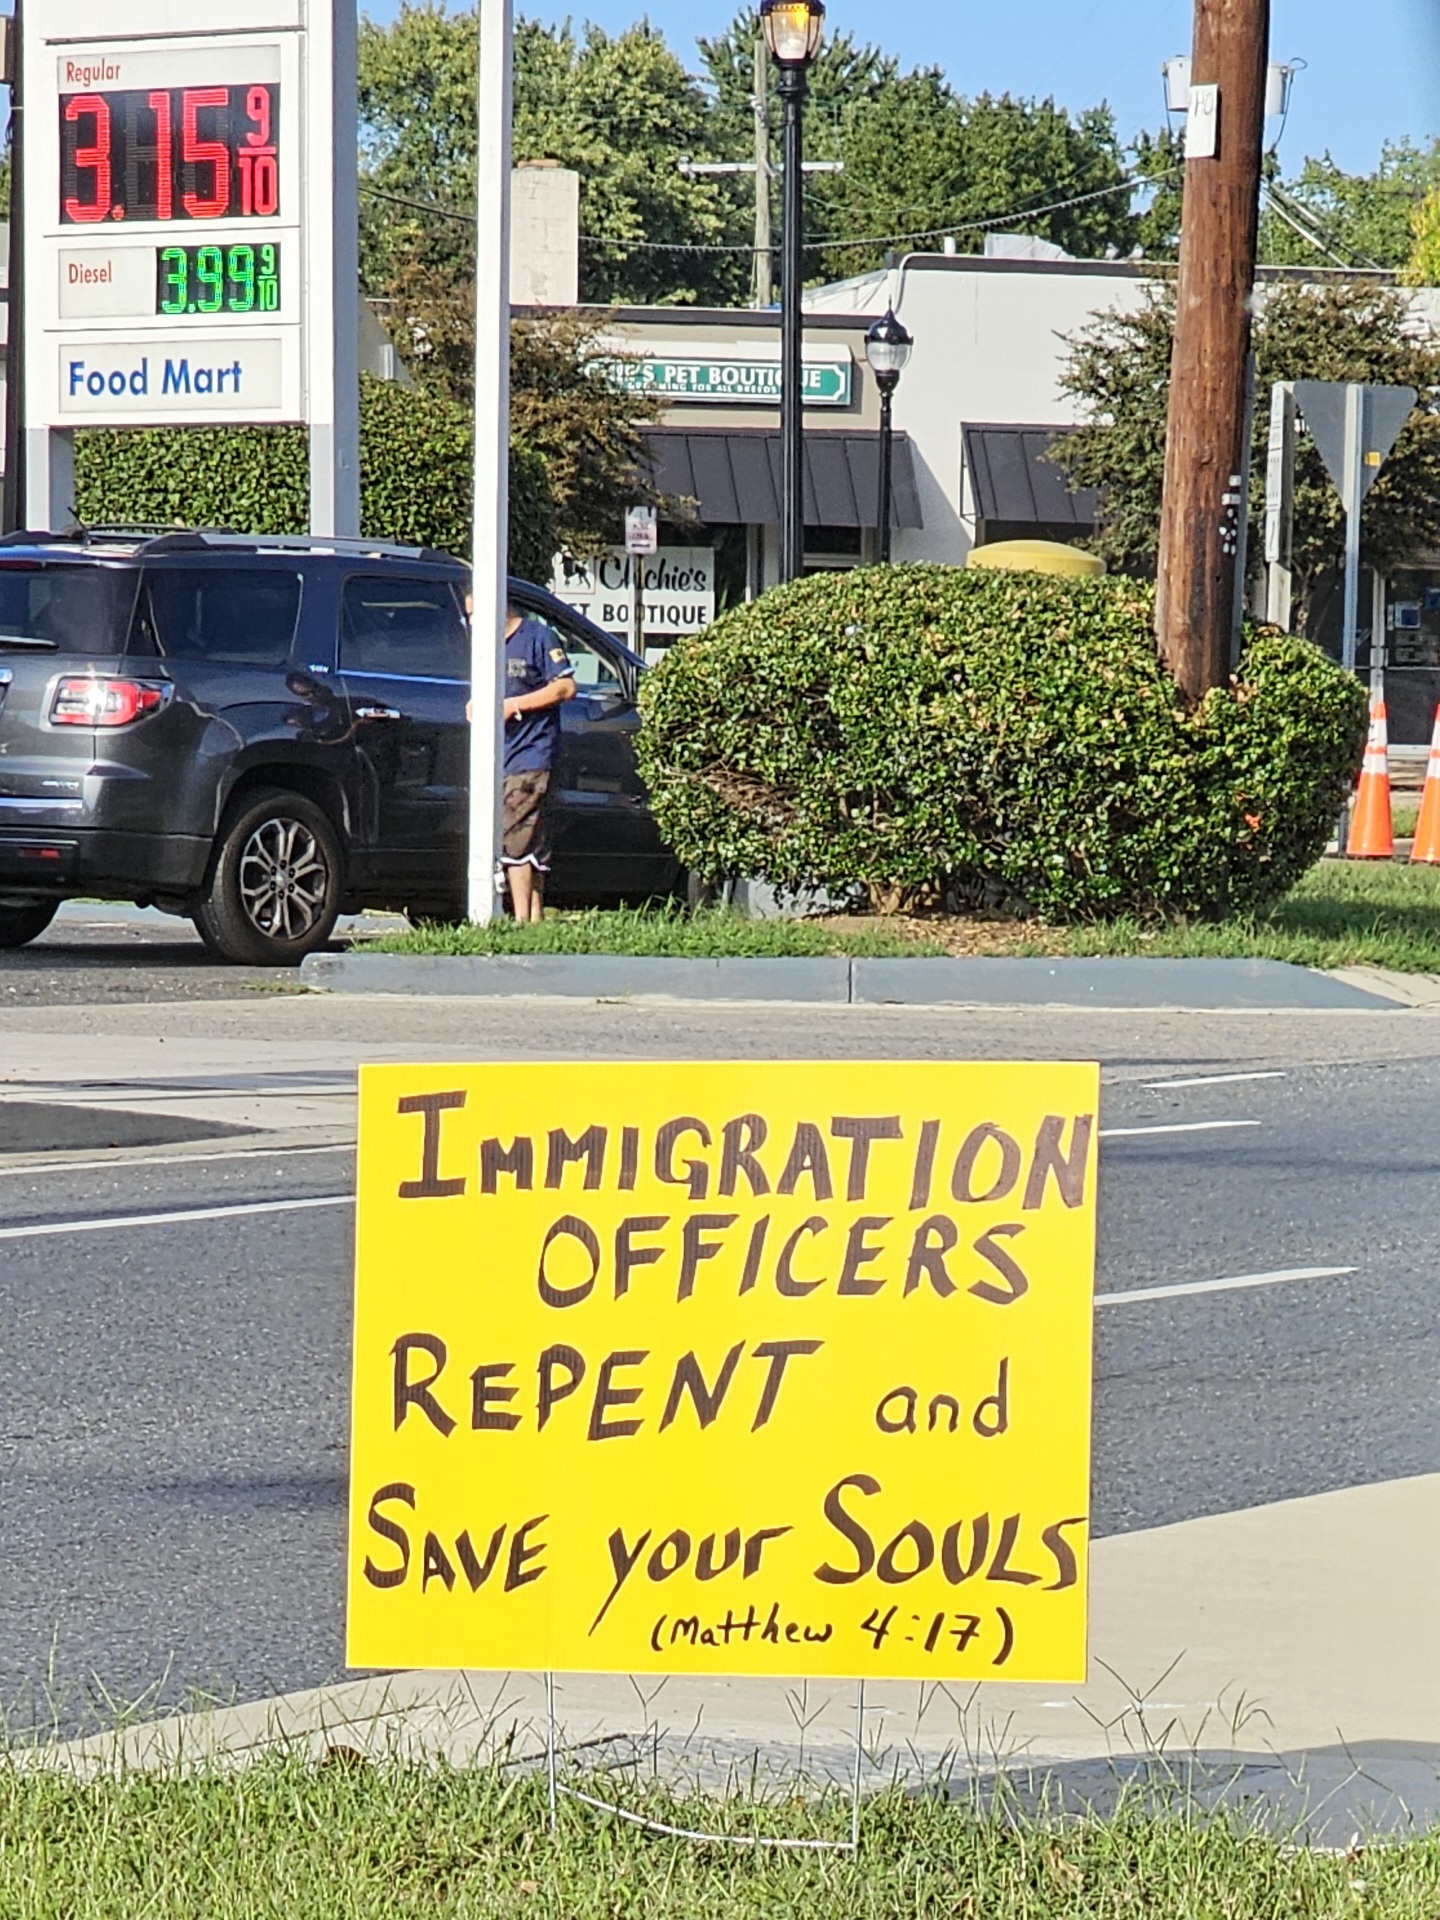 Regular
3.15 9/10
Diesel
3.99 9/10
Food Mart
'S PET BOUTIQUE
GROOMING FOR ALL BREEDS
Chichie's
ET BOUTIQUE
IMMIGRATION
OFFICERS
REPENT and
SAVE your SOULS
(Matthew 4:17)